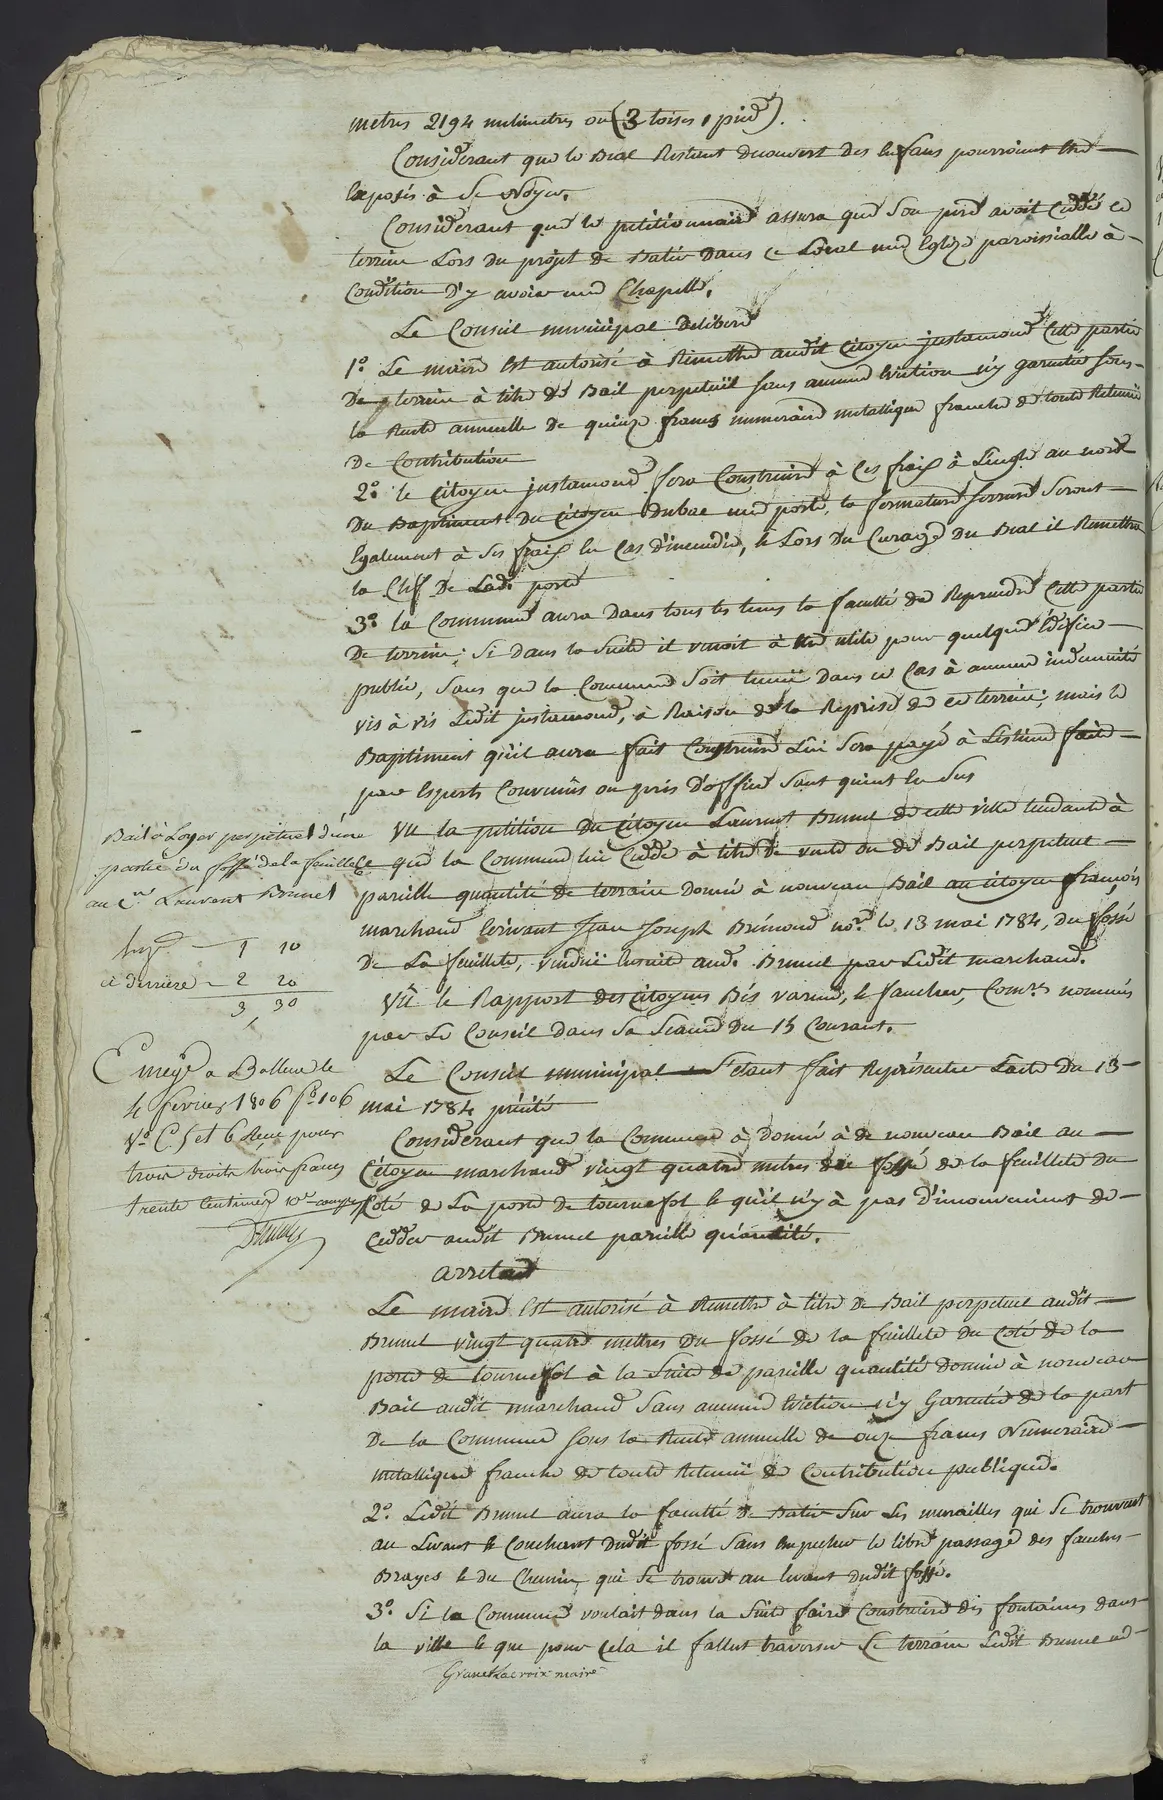 metres 2194 milimetres ou (3 toises 1 pied).
Considerant que le Béal Restant decouvert des Enfans pourroient être
Exposés à Se Noyer.
Considerant que le petitionnaire assura que Son pere avoit Ceddé ce
terrein Lors du projet de Batir Dans ce Local une Eglize paroissialle à
Condition D'y avoir une Chapelle.
Le Conseil municipal Delibere
1º. Le maire Est autorisé à Remettre audit Citoyen justamond Cette partie
De terrein à titre de Bail perpetuel sans aucune Eviction n'y garentie sous
la Rente annuelle De quinze francs numeraire metallique franche de toute Retenüe
De Contribution
2º. le Citoyen justamond fera Construire à Ces frais à L'angle au nord
Du Baptiment Du Citoyen Dubac une porte, la fermature serrure Seront
Egalement à Ses frais En Cas d'incendie, & Lors du Curage Du Béal il Remettra
la Clef De Lad. porte
3º. la Commune aura Dans tous les tems la faculté de Reprendre Cette partie
De terrein; Si Dans la Suite il venoit à être utile pour quelque Edifice
public, Sans que la Commune Soit tenüe Dans ce Cas à aucune indemnité
vis à vis Ledit justamond, à Raison de la Reprise de ce terrein; mais le
Baptiment qu'il aura fait Construire Lui Sera payé à L'estime faite
par Experts Convenus ou pris D'office Sans quint En Sus
Bail à Loyer perpetuel d'une
partie du fossé de la feuillete
au Cn Laurent Brunel
Vu la petition Du Citoyen Laurent Brunel de cette ville tendante à
ce que la Commune lui Cedde à titre de vente ou de Bail perpetuel
pareille quantité de terrein Donné à nouveau Bail au citoyen françois
marchand Ecrivant Jean Joseph Brémond nore. le 13 mai 1784, du fossé
De La feuillete, vendüe Ensuite aud. Brunel par Ledit marchand.
Vû le Rapport des Citoyens Bès varene, & faucher, Comres nommés
par Le Conseil Dans Sa Séance Du 15 Courant.
1 10
à derriere 2 20
3, 30
Le Conseil municipal S'étant fait Représenter L'acte Du 13
mai 1784 précité
Enregé a Bollene le
4 fevrier 1806 fo 106
Vo C. 5 et 6 Reçu pour
trois droits trois francs
trente Centimes 10e compris
Considerant que la Commune à Donné à de nouveau Bail au
Citoyen marchand vingt quatre metres de fossé de la feuillete du
Coté de La porte de tournefol & qu'il n'y à pas d'inconvenient de
Cedder audit Brunel pareille quantité.
arrette
Le maire Est autorisé à Remettre à titre de Bail perpetuel audit
Brunel vingt quatre mettres Du fossé de la feuillete du Coté de la
porte de tournefol à la Suite de pareille quantité donnée à nouveau
Bail audit marchand Sans aucune Eviction n'y Garentie de la part
De la Commune sous la Rente annuelle de onze francs Numeraire
metallique franche de toute Retenüe de Contribution publique.
2º. Ledit Brunel aura la faculté de Batir Sur Les murailles qui Se trouvent
au Levant & Couchant Dudit fossé Sans Empecher le libre passage des fausses
Brayes & du Chemin, qui Se trouve au levant dudit fossé.
3º. Si la Commune voulait dans la Suite faire Construire des fontaines dans
la ville & que pour Cela il fallut traverser Ce terrein Ledit Brunel ad
Granet Lacroix maire